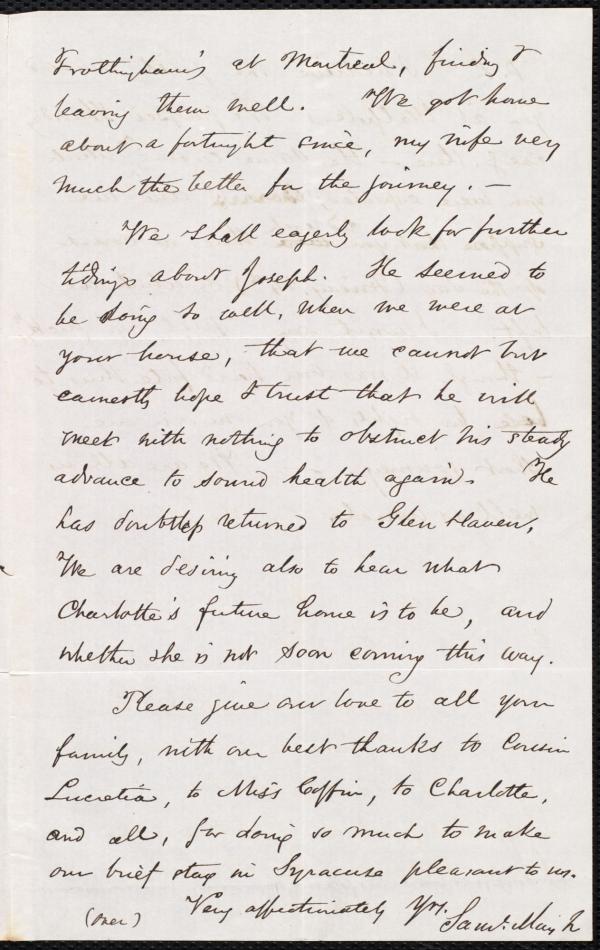 Frothingham's at Montreal, finding &
leaving them well. We got home
about a fortnight since, my wife very
much the better for the journey. —
We shall eagerly look for further
tidings about Joseph. He seemed to
be doing so well, when we were at
your house, that we cannot but
earnestly hope & trust that he will
meet with nothing to obstruct his steady
advance to sound health again. He
has doubtless returned to Glen Haven.
We are desiring also to hear what
Charlotte's future home is to be, and
whether she is not soon coming this way.
Please give our love to all your
family, with our best thanks to Cousin
Lucretia, to Miss Coffin, to Charlotte,
and all, for doing so much to make
our brief stay in Syracuse pleasant to us.
Very affectionately Yrs.
Saml. May Jr
(over)